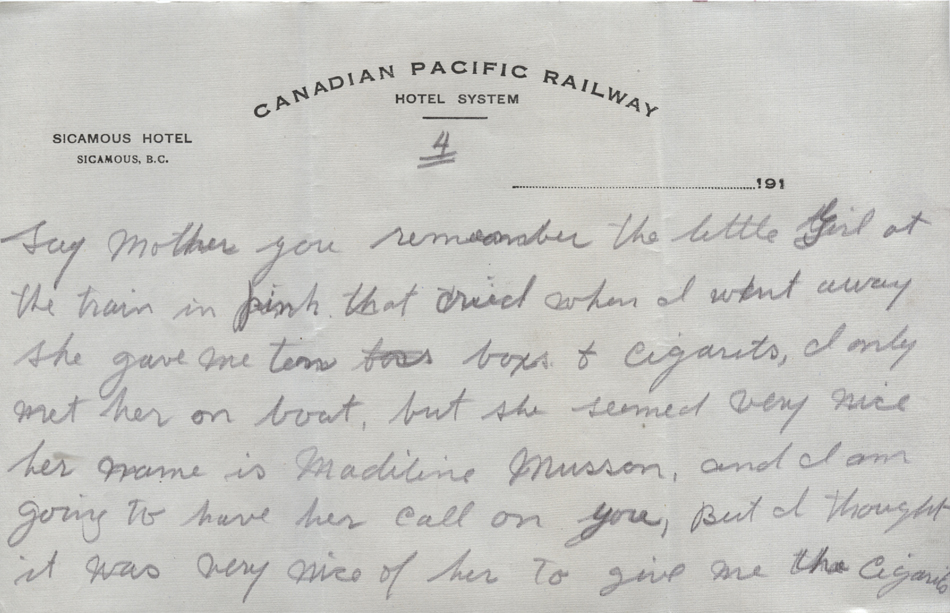 CANADIAN PACIFIC RAILWAY
HOTEL SYSTEM
SICAMOUS HOTEL
SICAMOUS, B.C.
4
191
Say Mother you remember the little Girl at
the train in pink that cried when I went away
she gave me ten boxs & cigarits, I only
met her on boat, but she seemed very nice
her name is Madiline Musson, and I am
going to have her call on you, But I thought
it was very nice of her to give me the cigarits